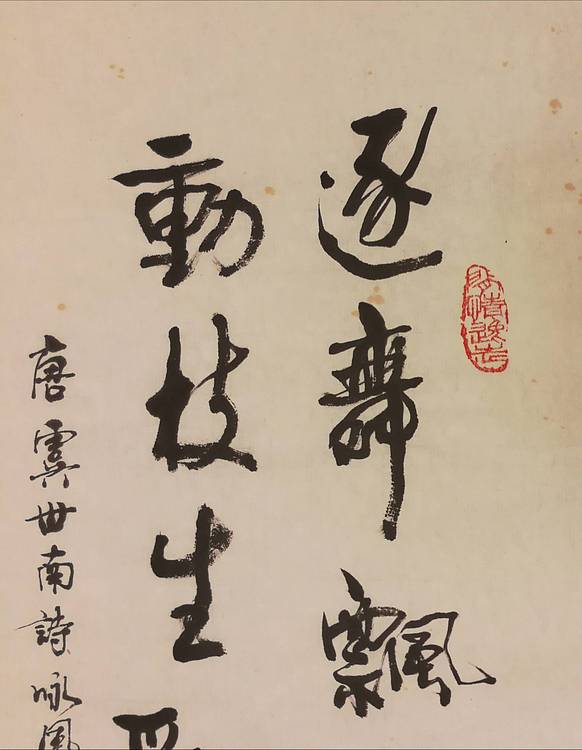 逐舞飄
動枝生
唐虞世南詩咏風